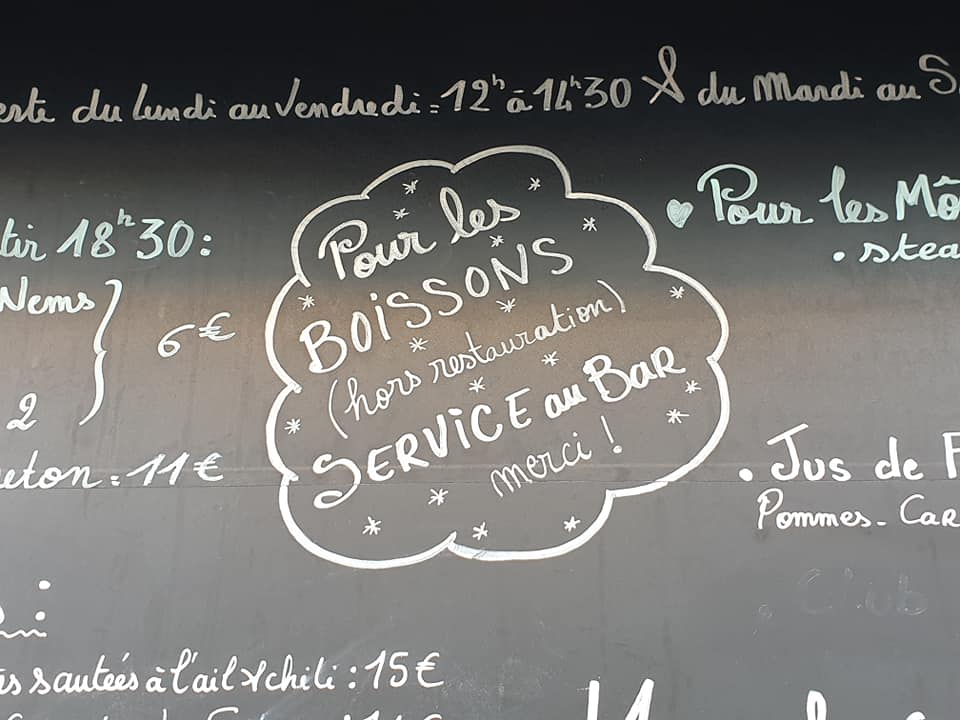 du Lundi au Vendredi : 12h à 14h30 & du Mardi au
tir 18h30 :
Nems
6€
2
11€
Pour les
BOISSONS
(hors restauration)
SERVICE au BAR
merci !
Pour les
Jus de
Pommes - 
Club
sautées à l'ail & chili : 15€